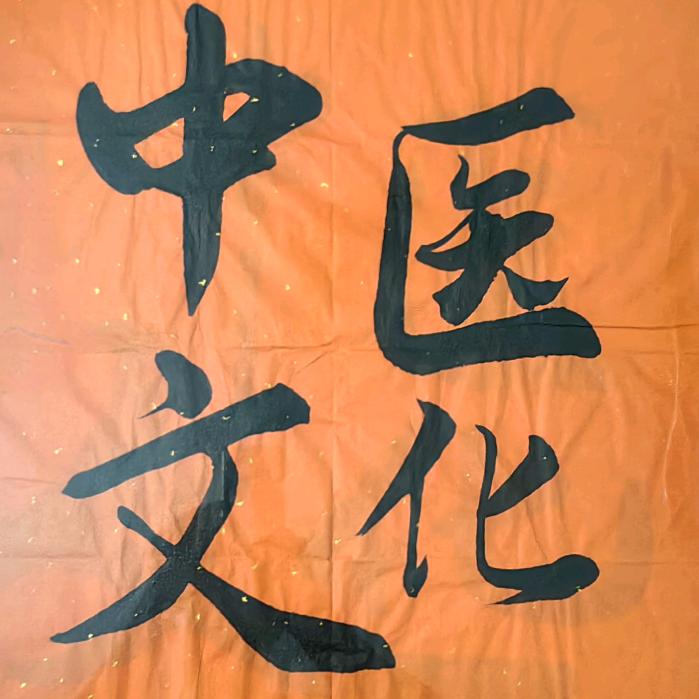 中医
文化